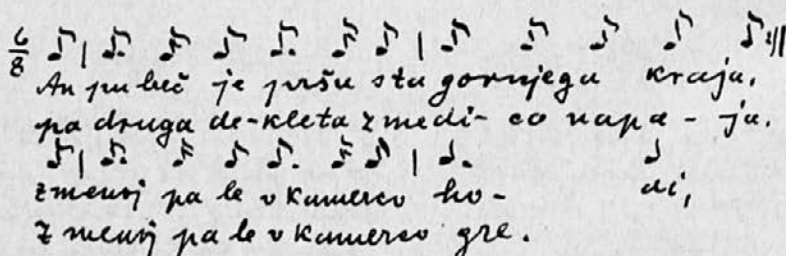 6/8
An pubeč je pršu sta gornjega kraja,
pa druga de-kleta z medi-co napa-ja.
z menoj pa le v kamerco ho- di,
Z menoj pa le v kamerco gre.